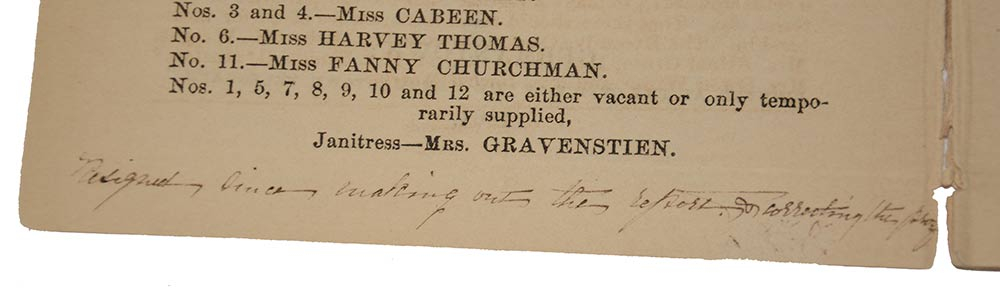 Nos. 3 and 4.—Miss CABEEN.
No. 6.—Miss HARVEY THOMAS.
No. 11.—Miss FANNY CHURCHMAN.
Nos. 1, 5, 7, 8, 9, 10 and 12 are either vacant or only tempo-
rarily supplied,
Janitress—Mrs. GRAVENSTIEN.
Resigned, since making out the report. & correcting the proof